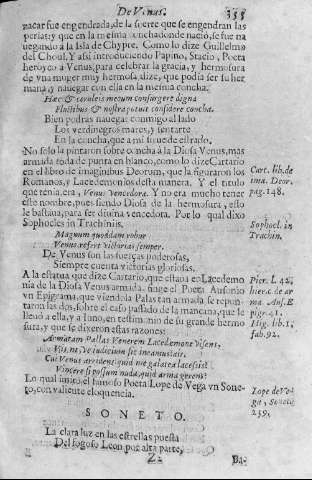 De Venus. 355
nacar fue engendrada, de la suerte que se engendran las
perlas; y que en la mesma conchadonde nacio, se fue na
uegando à la Isla de Chypre. Como lo dize Guillelmo
del Choul. Y assi introduciendo Papino, Stacio, Poeta
heroyco à Venus, para celebrar la gracia, y hermosura
de vna muger muy hermosa, dize, que podia ser su her
mana, y nauegar con ella en la mesma concha.
Hæc & cæruleis mecum consurgere digna
Fluctibus & nostra potuit considere concha.
Bien podras nauegar conmigo al lado
Los verdinegros mares, y sentarte
En la concha, que a mi sirue de estrado,
No solo la pintaron sobre concha à la Diosa Venus, mas
armada toda de punta en blanco, como lo dize Cartario
en el libro de imaginibus Deorum, que la figuraron los
Romanos, y Lacedemonios desta manera. Y el titulo
que tenia, era, Venus Vencedora. Y no era mucho tener
este nombre, pues siendo Diosa de la hermosura, esso
le bastaua, para ser diuina vencedora. Por lo qual dixo
Sophocles in Trachiniis,
Magnum quoddam robur
Venus refert victorias semper.
De Venus son las fuerças poderosas,
Siempre cuenta victorias gloriosas.
A la estatua que dize Cartario, que estaua en Lacedemo
nia de la Diosa Venus armada, finge el Poeta Ausonio
vn Epigrama, que viendola Palas tan armada se repun
taron las dos, sobre el caso passado de la mançana, que le
lleuò a ella, y a Iuno, en testimonio de su grande hermo
sura, y que se dixeron estas razones:
Armatam Pallas Venerem Lacedemone visens,
Visne vt iudicium sic ineamus ait.
Cui Venus arridens: quid me galeata lacessis?
Vincere si possum nuda, quid arma gerens?
Lo qual imitò el famoso Poeta Lope de Vega vn Sone-
to, con valiente eloquencia.
SONETO.
La clara luz en las estrellas puesta
Del fogoso Leon por alta parte,
Z 2 Ba-
Cart. lib. de
ima. Deor.
pag. 148.
Sophocl. in
Trachin.
Pier. l. 42.
hier. c. de ar
ma
pig. 41.
Hig. lib. 1.
fab. 92.
Lope de Ve-
ga, Soneto
259.